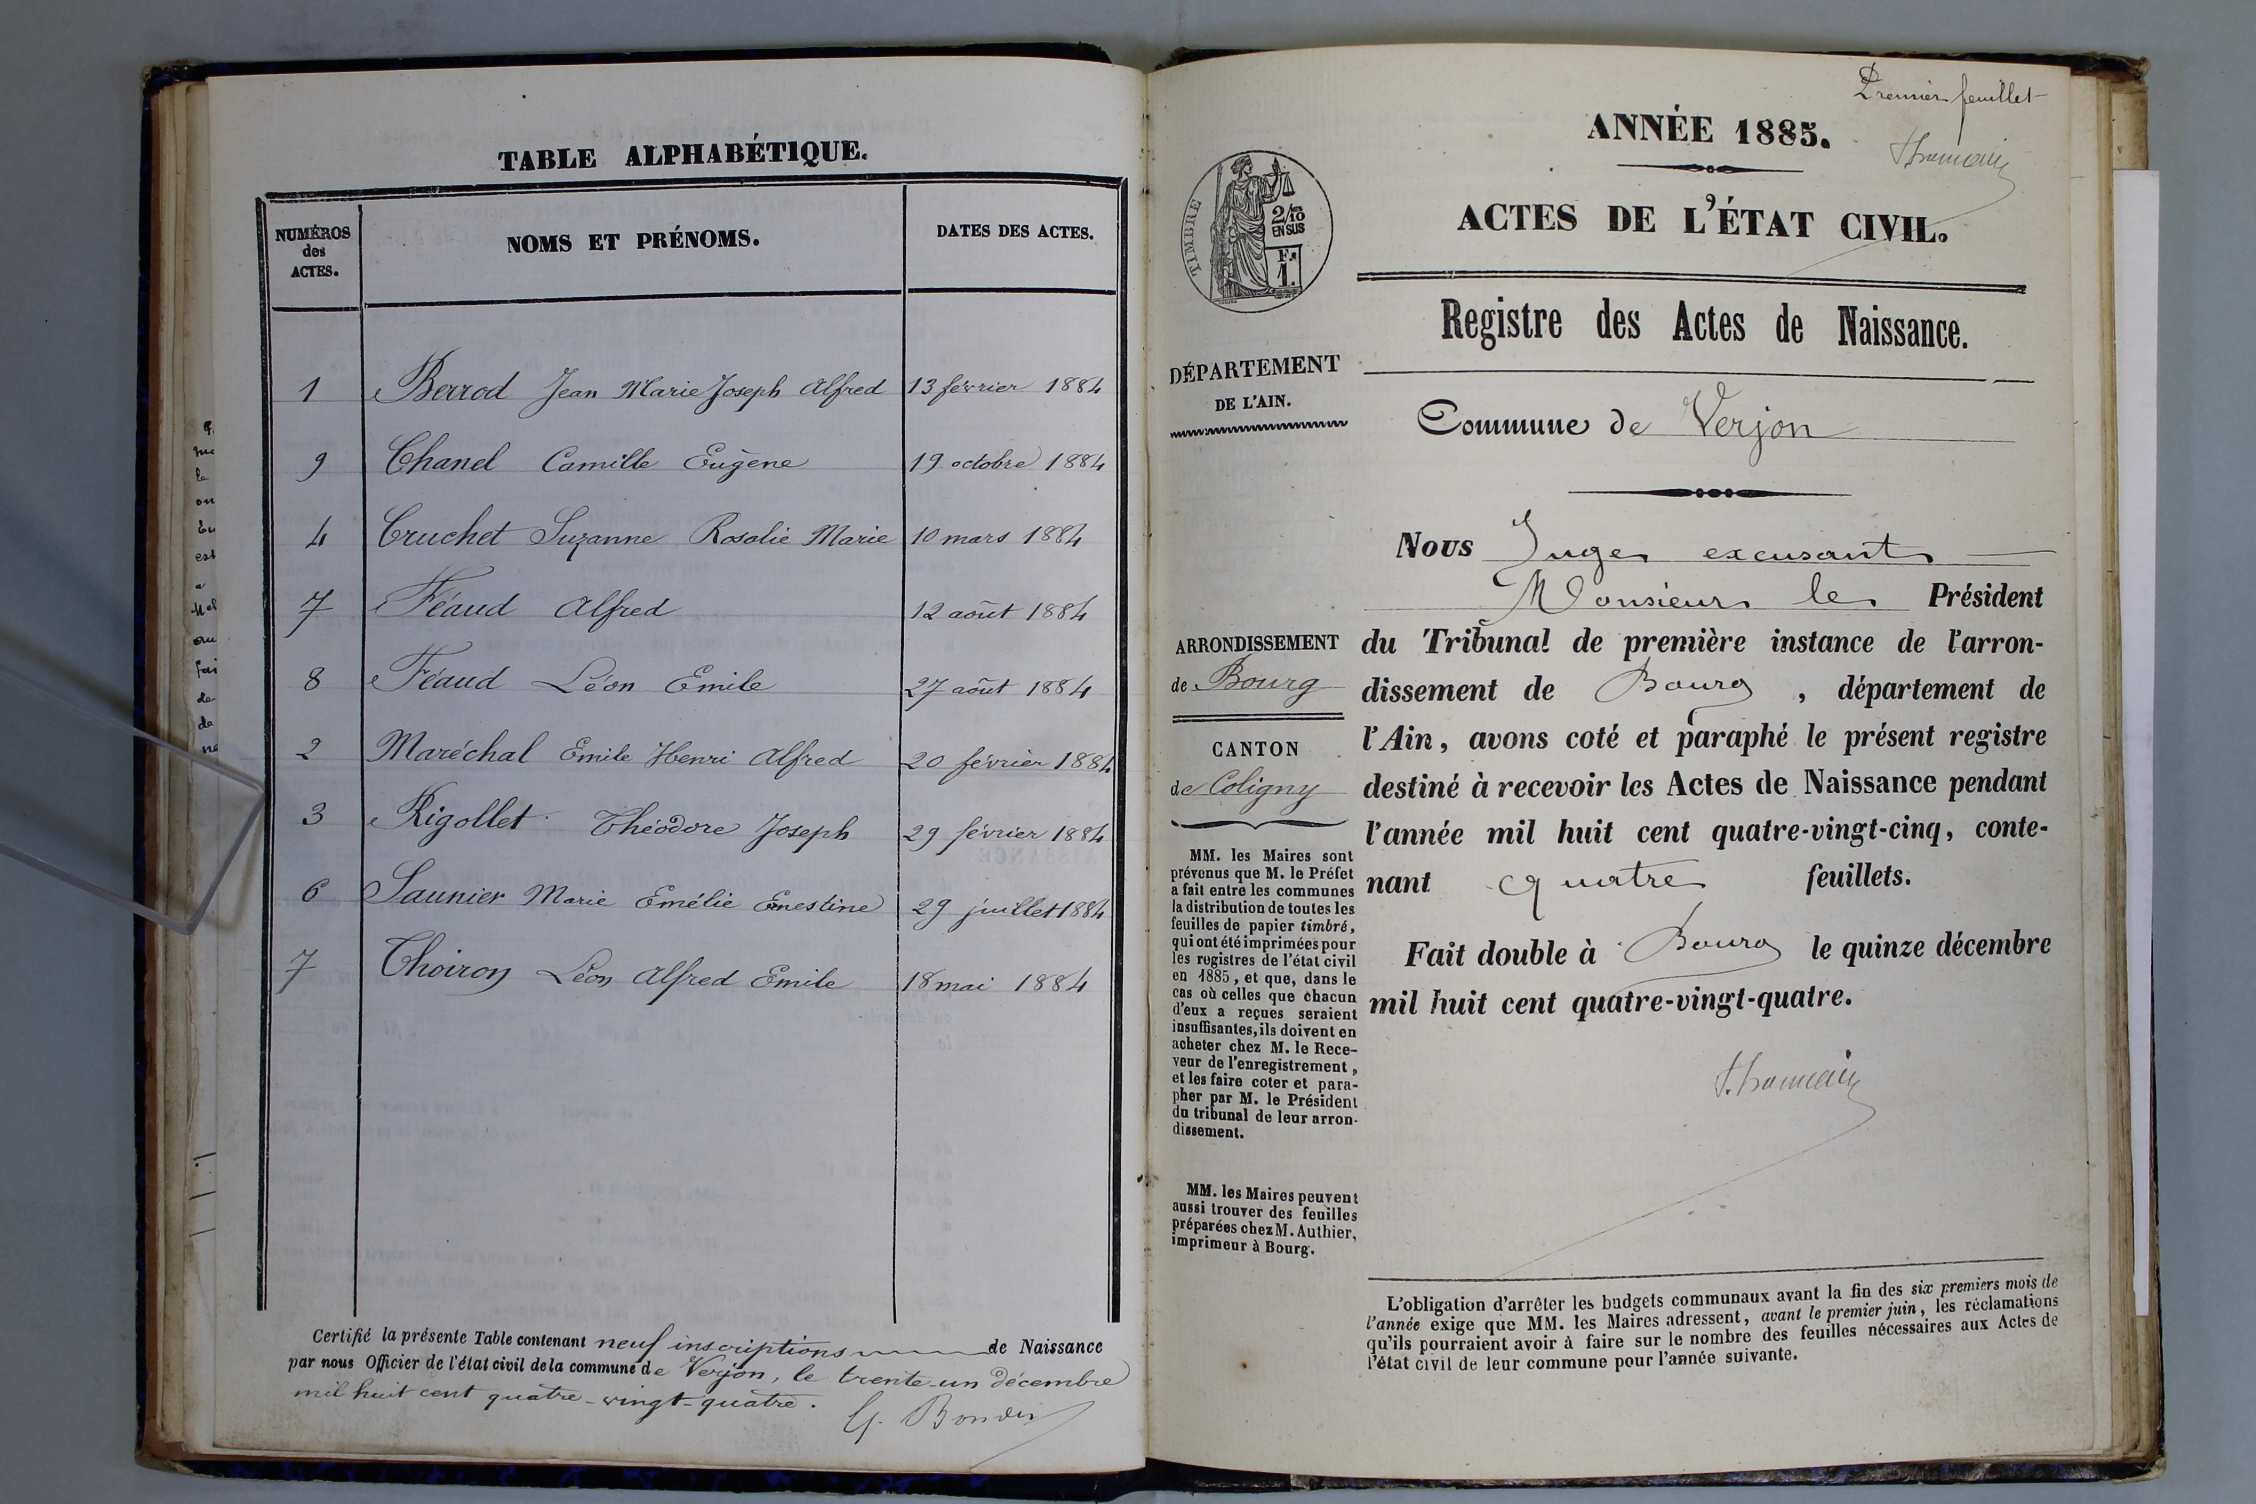 TABLE ALPHABÉTIQUE.
NUMÉROS des ACTES. NOMS ET PRÉNOMS. DATES DES ACTES.
1 Berrod Jean Marie Joseph Alfred 13 février 1884
9 Chanel Camille Eugène 19 octobre 1884
4 Cruchet Suzanne Rosalie Marie 10 mars 1884
7 Féaud Alfred 12 août 1884
8 Féaud Léon Emile 27 août 1884
2 Maréchal Emile Henri Alfred 20 février 1884
3 Rigollet Théodore Joseph 29 février 1884
6 Saunier Marie Emélie Ernestine 29 juillet 1884
7 Thoiron Léon Alfred Emile 18 mai 1884
Certifié la présente Table contenant neuf inscriptions de Naissance
par nous Officier de l'état civil de la commune de Verjon, le trente-un décembre
mil huit cent quatre-vingt-quatre.
Premier feuillet
ANNÉE 1885.
ACTES DE L'ÉTAT CIVIL.
TIMBRE
2/10
EN SUS
F.
1.
Registre des Actes de Naissance.
DÉPARTEMENT
DE L'AIN.
Commune de Verjon
Nous Juge excusant
Monsieur le Président
du Tribunal de première instance de l'arron-
dissement de Bourg, département de
l'Ain, avons coté et paraphé le présent registre
destiné à recevoir les Actes de Naissance pendant
l'année mil huit cent quatre-vingt-cinq, conte-
nant quatre feuillets.
Fait double à Bourg le quinze décembre
mil huit cent quatre-vingt-quatre.
ARRONDISSEMENT
de Bourg
CANTON
de Coligny
MM. les Maires sont
prévenus que M. le Préfet
a fait entre les communes
la distribution de toutes les
feuilles de papier timbré,
qui ont été imprimées pour
les registres de l'état civil
en 1885, et que, dans le
cas où celles que chacun
d'eux a reçues seraient
insuffisantes, ils doivent en
acheter chez M. le Rece-
veur de l'enregistrement,
et les faire coter et para-
pher par M. le Président
du tribunal de leur arron-
dissement.
MM. les Maires peuvent
aussi trouver des feuilles
préparées chez M. Authier,
imprimeur à Bourg.
L'obligation d'arrêter les budgets communaux avant la fin des six premiers mois de
l'année exige que MM. les Maires adressent, avant le premier juin, les réclamations
qu'ils pourraient avoir à faire sur le nombre des feuilles nécessaires aux Actes de
l'état civil de leur commune pour l'année suivante.